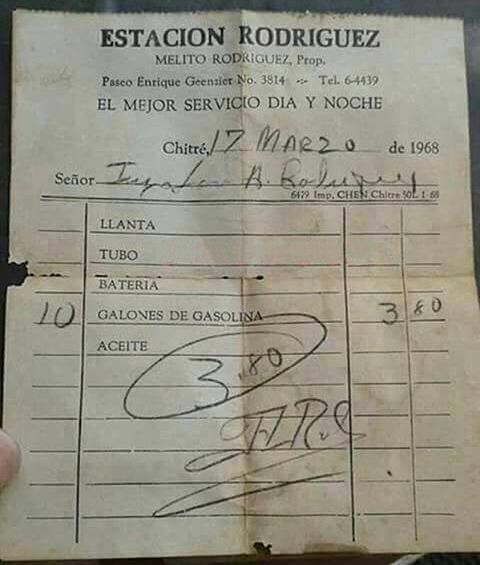 ESTACION RODRIGUEZ
MELITO RODRIGUEZ, Prop.
Paseo Enrique Geenzier No. 3814 -:- Tel. 6-4439
EL MEJOR SERVICIO DIA Y NOCHE
Chitré, 17 MARZO de 1968
Señor A. Rodriguez
6479 Imp. CHEN Chitre 50L 1 68
LLANTA
TUBO
BATERIA
10 GALONES DE GASOLINA 3 80
ACEITE
3.80